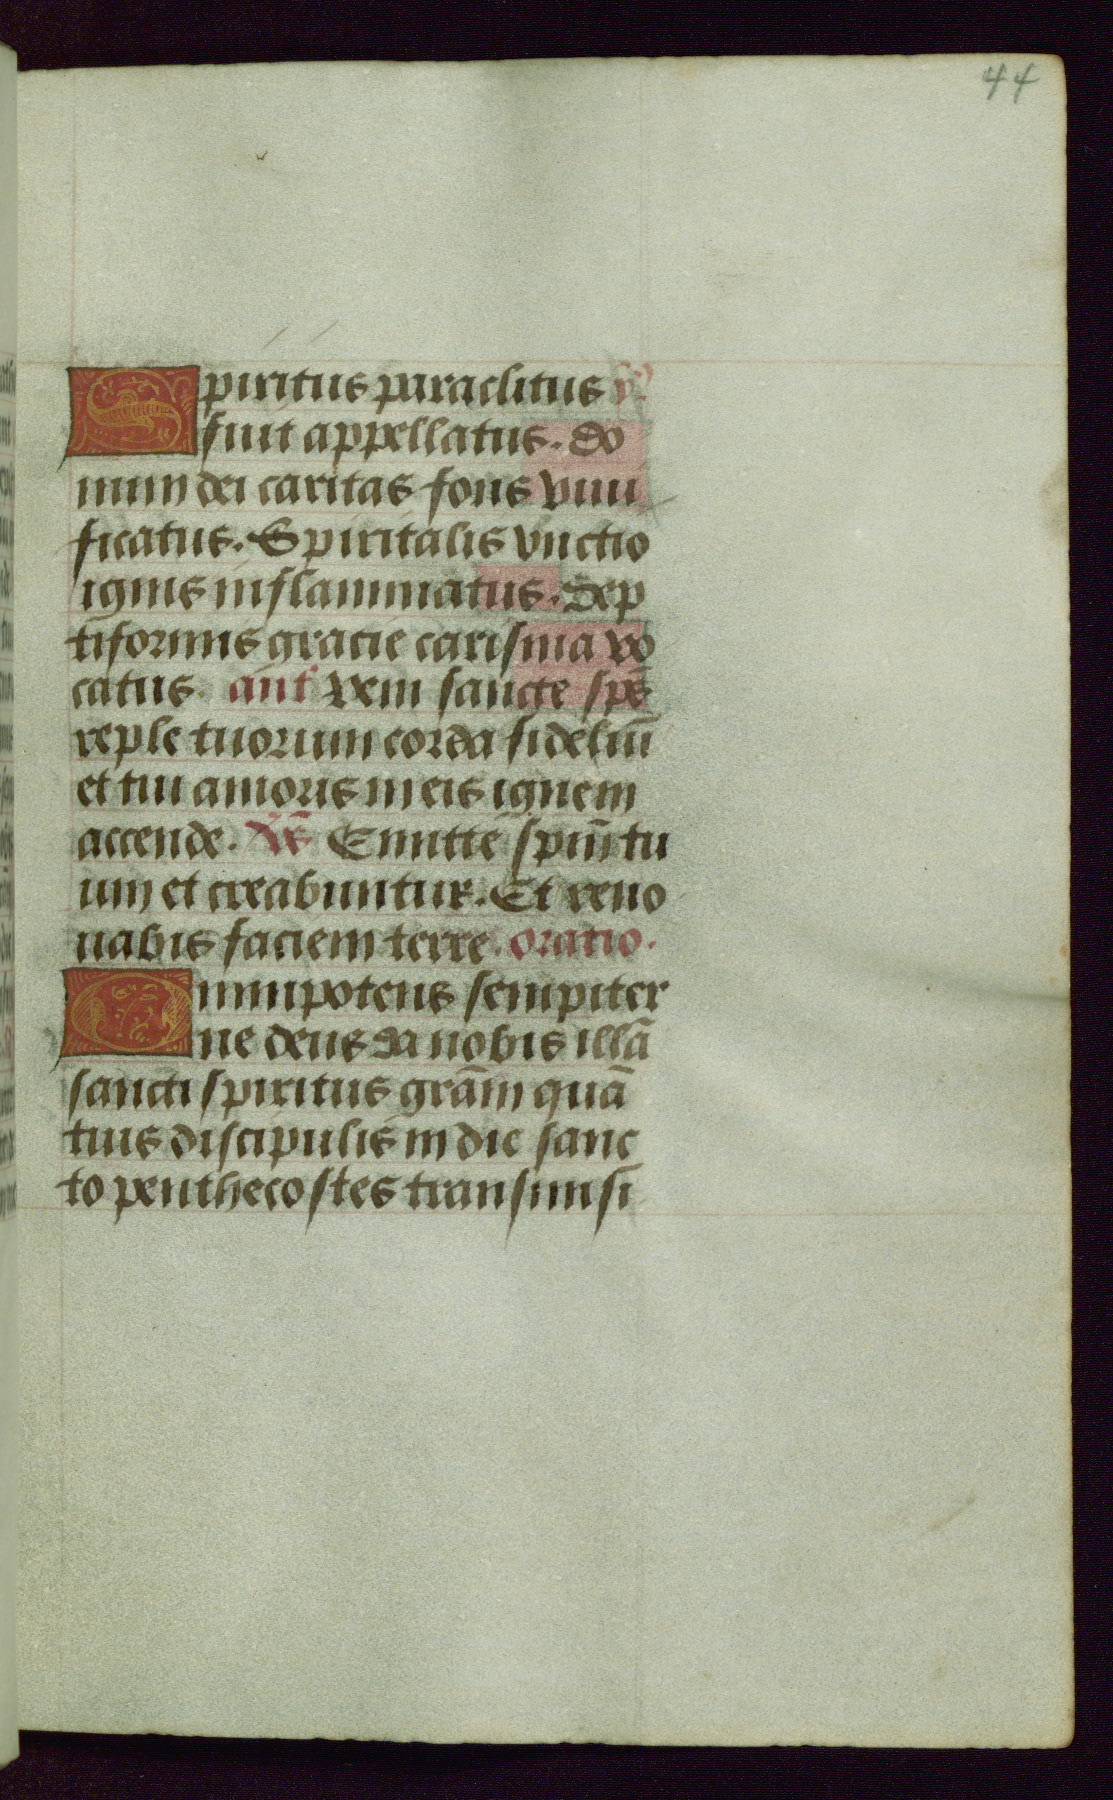 44
Spiritus paraclitus
fuit appellatus. Do
num dei caritas fons viui
ficatus. Spiritalis vnctio
ignis inflammatus. Sep
tiformis gracie carisma vo
catus. añt Veni sancte sp̄s
reple tuorum corda fideliū
et tui amoris in eis ignem
accende. Emitte sp̄m tu
um et creabuntur. Et reno
uabis faciem terre. oratio.
Omnipotens sempiter
ne deus da nobis illā
sancti spiritus grām quā
tuis discipulis in die sanc
to penthecostes transmisi